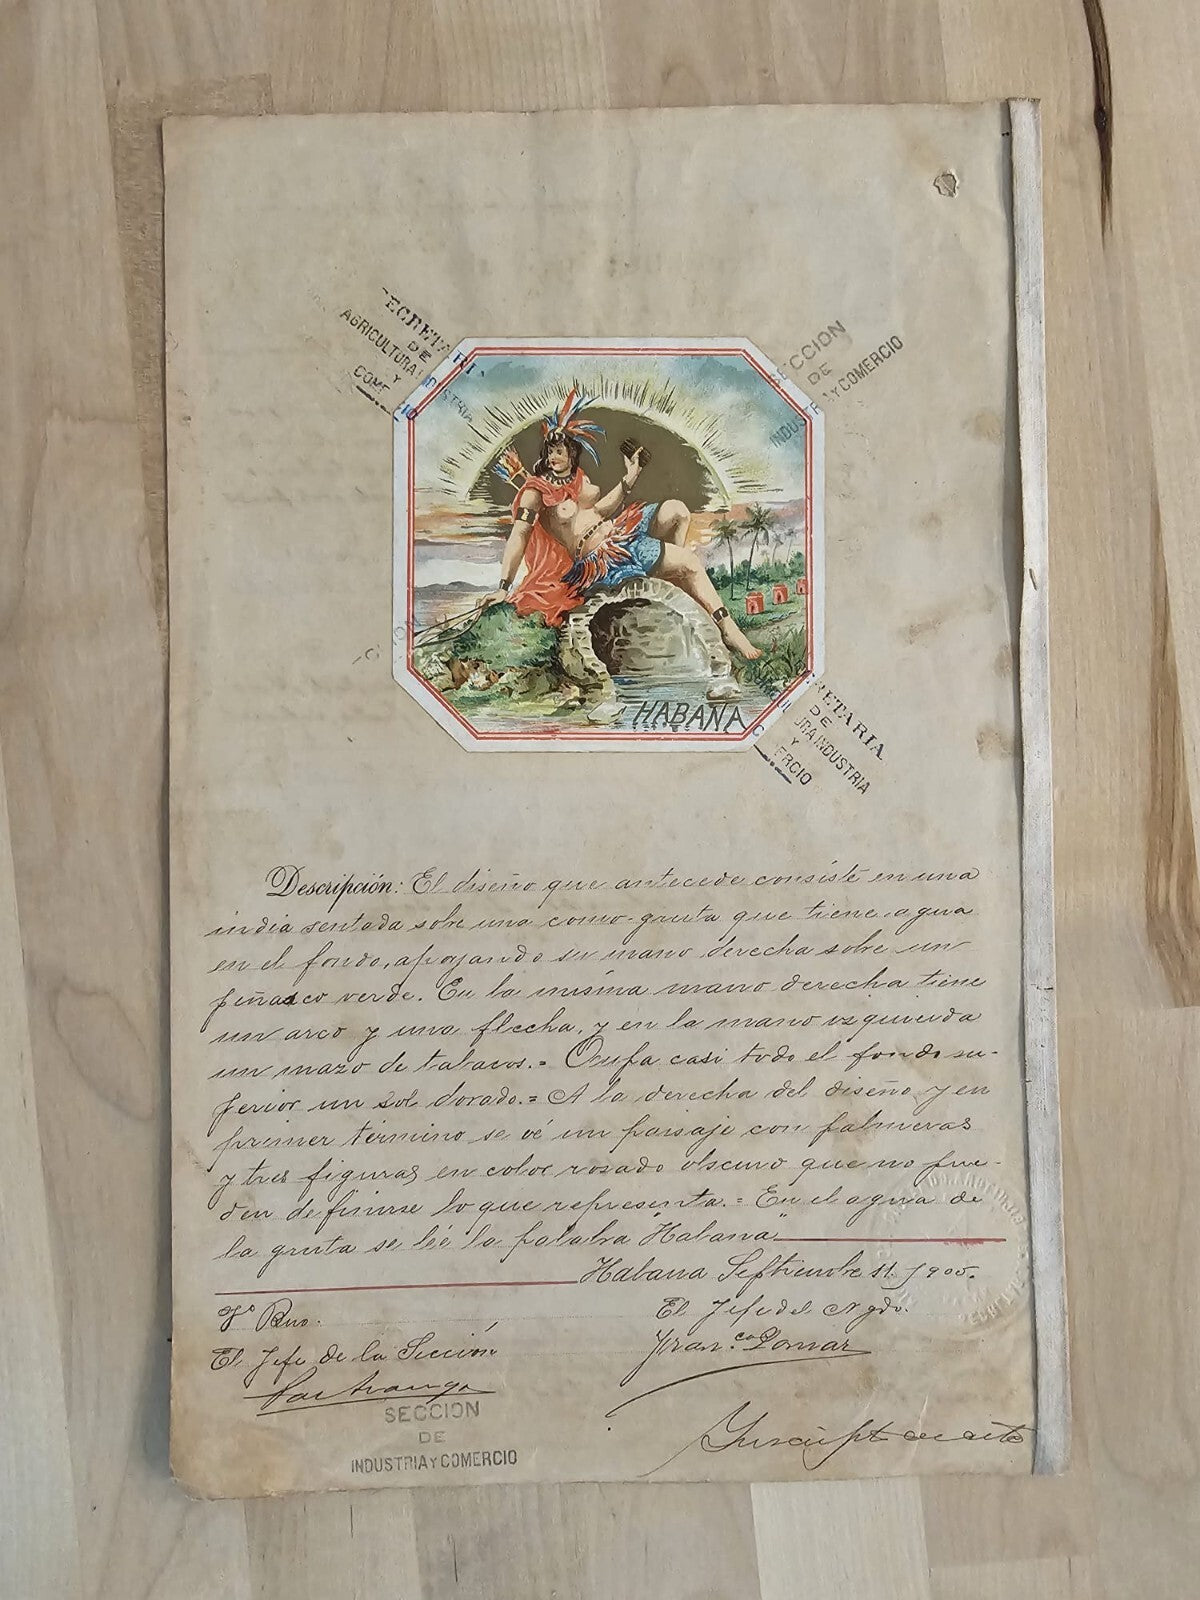 ECRETARI
DE
AGRICULTURA INDUSTRIA
Y
COME CIO
SECCION
DE
INDUST Y COMERCIO
HABANA
CRETARIA
DE
URA INDUSTRIA
Y
ERCIO
Descripción: El diseño que antecede consiste en una
india sentada sobre una como gruta que tiene agua
en el fondo, apoyando su mano derecha sobre un
peñasco verde. En la misma mano derecha tiene
un arco y una flecha, y en la mano izquierda
un mazo de tabacos.= Ocupa casi todo el fondo su-
perior un sol dorado.= A la derecha del diseño y en
primer término se vé un paisaje con palmeras
y tres figuras en color rosado obscuro que no pue-
den definirse lo que representa.= En el agua de
la gruta se lée la palabra "Habana"
Habana Septiembre 11/905.
Vº Bno.
El Jefe del Ngdo.
El Jefe de la Sección
Fran.co Pomar
SECCION
DE
INDUSTRIA Y COMERCIO